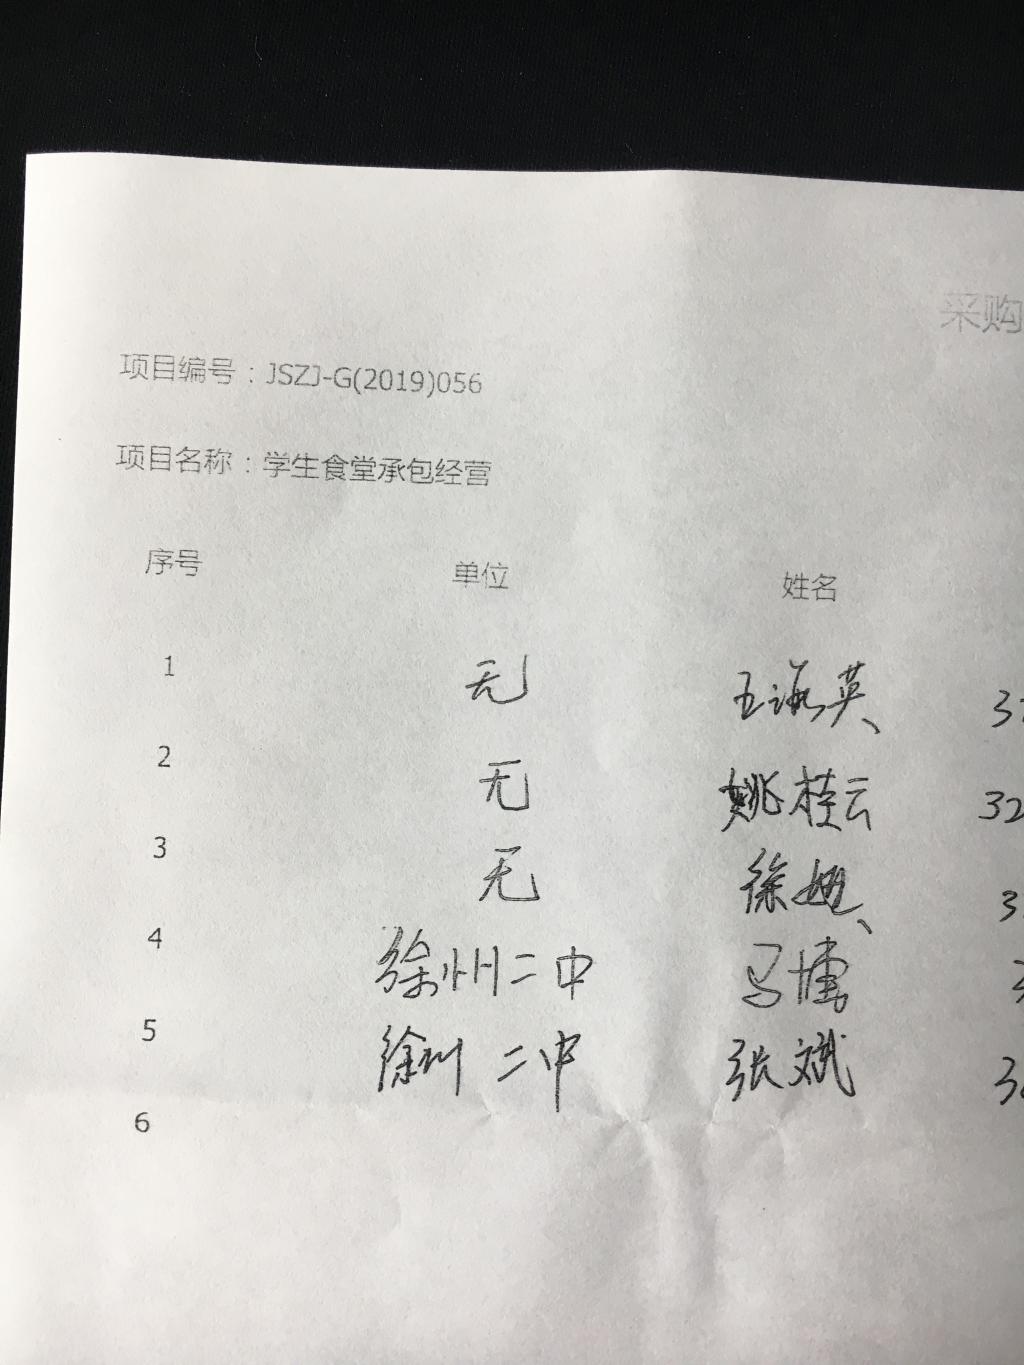 采购
项目编号：JSZJ-G(2019)056
项目名称：学生食堂承包经营
序号 单位 姓名
1 无 王海英 3
2 无 姚桂云 32
3 无 徐 3
4 徐州二中 马 3
5 徐州二中 张斌 3
6